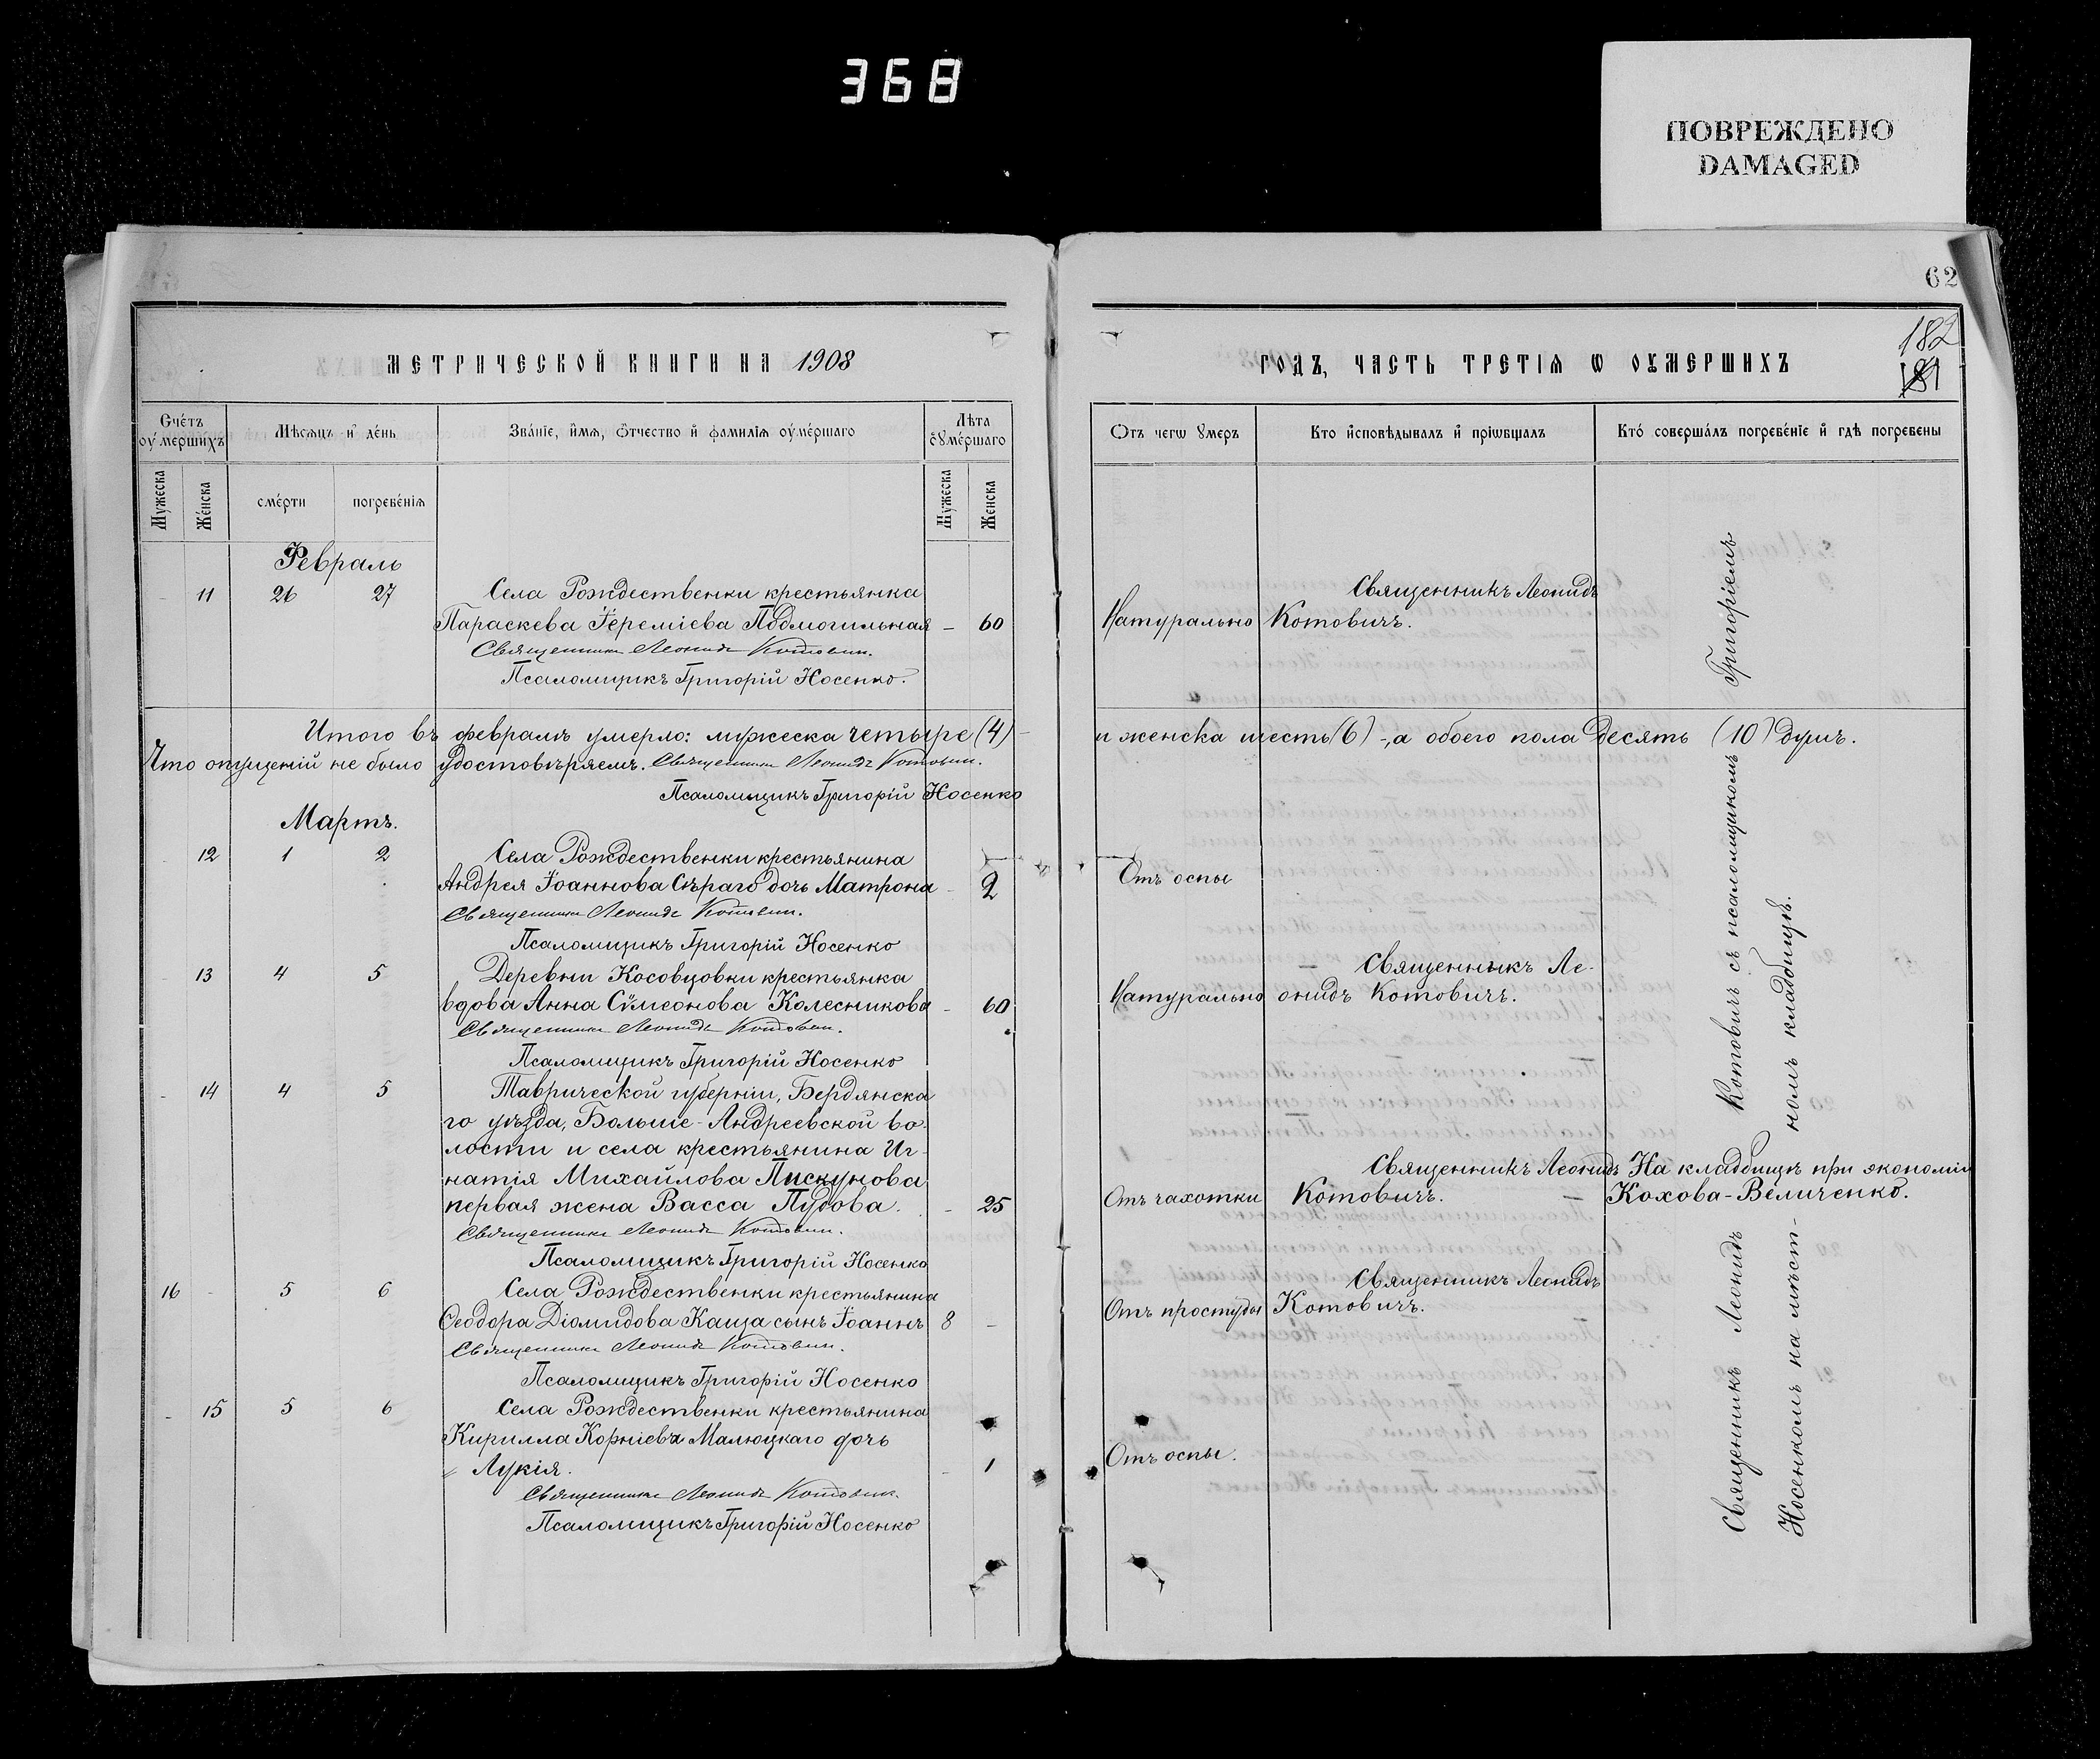 368
ПОВРЕЖДЕНО
DAMAGED
62
182
181
МЕТРИЧЕСКОЙ КНИГИ НА 1908
ГОДЪ, ЧАСТЬ ТРЕТІѦ Ѡ ОУМЕРШИХЪ
Счетъ оумершихъ
Мѣсѧцъ и день
Званіе, имѧ, ѿчество и фамиліѧ оумершаго
Лѣта оумершаго
Отъ чегѡ умеръ
Кто исповѣдывалъ и пріѡбщалъ
Кто совершалъ погребеніе и гдѣ погребены
Мужеска
Женска
смерти
погребеніѧ
Мужеска
Женска
Февраль
11 26 27 Села Рождественки крестьянка
Параскева Іереміева Подмогильная – 60 Натурально Священникъ Леонидъ
Котовичъ.
Священникъ Леонидъ Котовичъ.
Псаломщикъ Григорій Носенко.
Итого въ февралѣ умерло: мужеска четыре (4) – и женска шесть (6) –, а обоего пола десять (10) душъ.
Что опущеній не было удостовѣряемъ. Священникъ Леонидъ Котовичъ.
Псаломщикъ Григорій Носенко
Мартъ.
- 12 1 2 Села Рождественки крестьянина
Андрея Іоаннова Сѣраго дочь Матрона - 2 Отъ оспы
Священникъ Леонидъ Котовичъ.
Псаломщикъ Григорій Носенко
- 13 4 5 Деревни Косовцовки крестьянка
вдова Анна Сѵмеонова Колесникова - 60 Натурально Священникъ Ле-
онидъ Котовичъ.
Священникъ Леонидъ Котовичъ.
Псаломщикъ Григорій Носенко
- 14 4 5 Таврической губерніи, Бердянска
го уѣзда, Больше-Андреевской во-
лости и села крестьянина Иг-
натія Михайлова Пискунова
первая жена Васса Пудова. - 25 Отъ чахотки Священникъ Леонидъ
Котовичъ. –
На кладбищѣ при экономіи
Кохова-Величенко.
Священникъ Леонидъ Котовичъ.
Псаломщикъ Григорій Носенко
16 - 5 6 Села Рождественки крестьянина
Ѳеодора Діомидова Каща сынъ Іоаннъ 8 – Отъ простуды Священникъ Леонидъ
Котовичъ.
Священникъ Леонидъ Котовичъ.
Псаломщикъ Григорій Носенко
- 15 5 6 Села Рождественки крестьянина
Кирилла Корніева Малюцкаго дочь
" Лукія. - 1 Отъ оспы.
Священникъ Леонидъ Котовичъ.
Псаломщикъ Григорій Носенко
Священникъ Леонидъ Котовичъ съ псаломщикомъ Григоріемъ
Носенкомъ на мѣст-
номъ кладбищѣ.